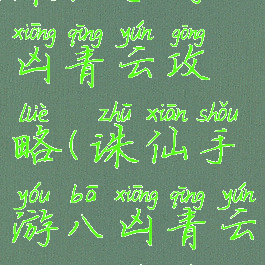 xiōng qīng yún gōng
凶青云攻
lüè zhū xiān shǒu
略(诛仙手
yóu bā xiōng qīng yún
游八凶青云